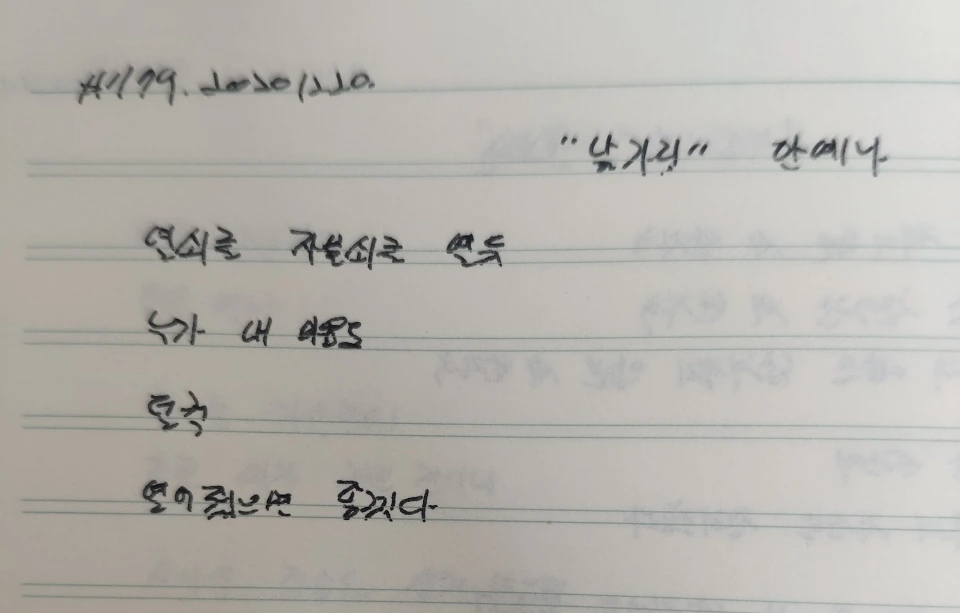 #1179. 20201220.
안예나
열쇠로 자물쇠를 열듯
누가 내 마음도
털컥
열어줬으면 좋겠다